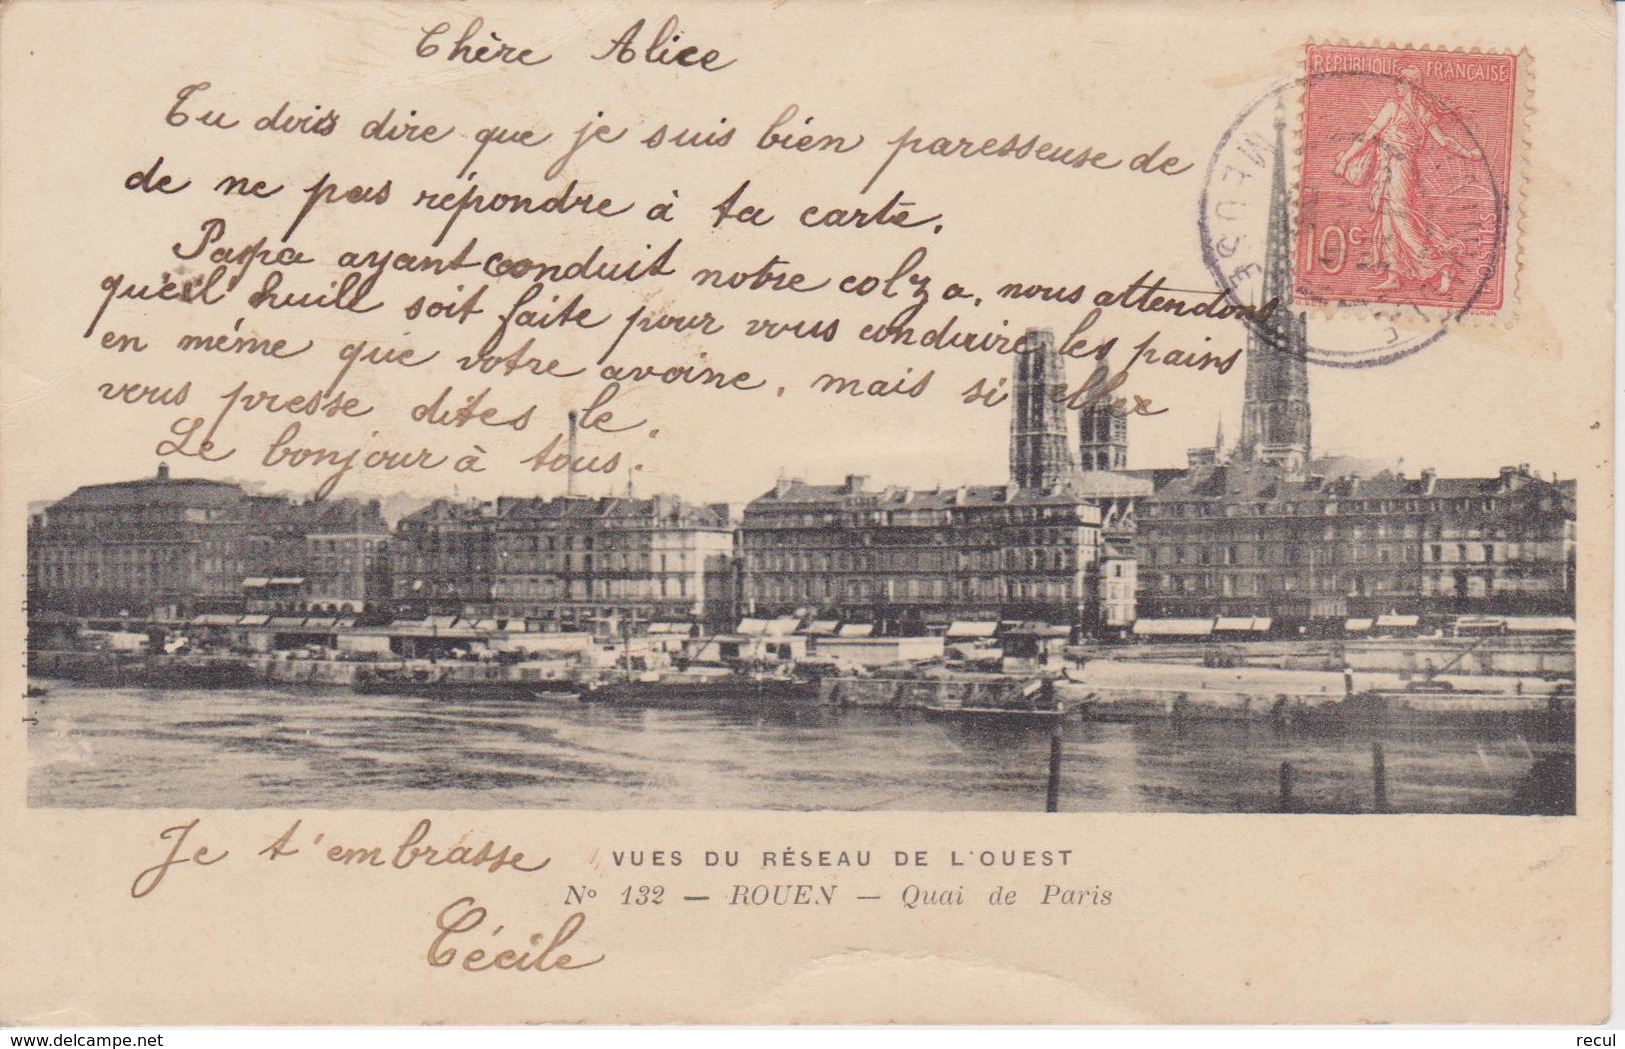 Chère Alice
Tu dois dire que je suis bien paresseuse de
de ne pas répondre à ta carte.
Papa ayant conduit notre colza, nous attendons
qu'el huile soit faite pour vous conduire les pains
en même que votre avoine, mais si elles
vous presse dites le.
Le bonjour à tous.
RÉPUBLIQUE FRANÇAISE
10c
POSTES
Je t'embrasse
VUES DU RÉSEAU DE L'OUEST
No 132 — ROUEN — Quai de Paris
Cécile
delcampe.net
recul